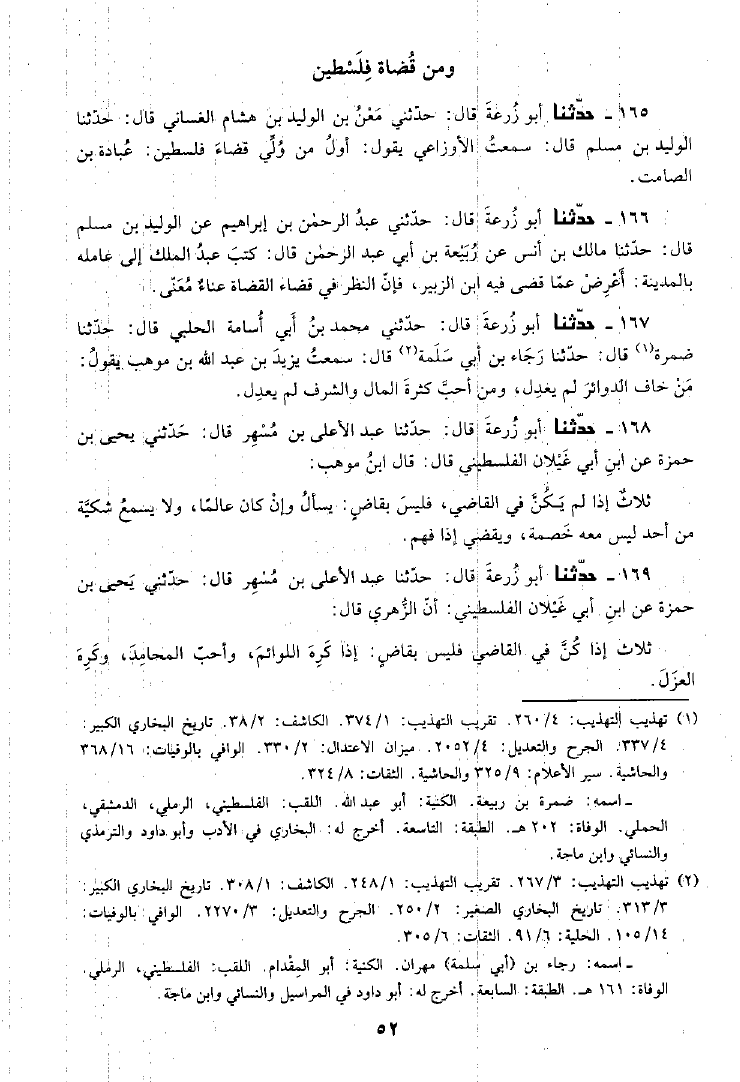 ومن قُضاة فِلَسْطين
١٦٥ ـ حدّثنا أبو زُرعةَ قال: حدّثني مَعْنُ بن الوليد بن هشام الغساني قال: حَدّثنا
الوليد بن مسلم قال: سمعتُ الأوزاعي يقول: أولُ من وُلِّي قضاءَ فلسطين: عُبادة بن
الصامت.
١٦٦ ـ حدّثنا أبو زُرعةَ قال: حدّثني عبدُ الرحمٰن بن إبراهيم عن الوليد بن مسلم
قال: حدّثنا مالك بن أنس عن رُبَيْعة بن أبي عبد الرحمٰن قال: كتبَ عبدُ الملك إلى عامله
بالمدينة: أَعْرِضْ عمّا قضى فيه ابن الزبير، فإنّ النظر في قضاء القضاة عناءٌ مُعَنّى.
١٦٧ ـ حدّثنا أبو زُرعةَ قال: حدّثني محمد بنُ أَبي أُسامة الحلبي قال: حدّثنا
ضمرة(١) قال: حدّثنا رَجَاء بن أبي سَلَمة(٢) قال: سمعتُ يزيدَ بن عبد الله بن موهب يقولُ:
مَنْ خاف الدوائرَ لم يعْدِل، ومن أحبَّ كثرةَ المال والشرف لم يعدِل.
١٦٨ ـ حدّثنا أبو زُرعةَ قال: حدّثنا عبد الأعلى بن مُسْهِر قال: حَدّثني يحيى بن
حمزة عن ابنِ أبي غَيْلان الفلسطيني قال: قال ابنُ موهب:
ثلاثٌ إذا لم يَكُنَّ في القاضي، فليسَ بقاضٍ: يسألُ وإنْ كان عالمًا، ولا يسمعُ شكيَّة
من أحد ليس معه خَصمة، ويقضي إذا فهم.
١٦٩ ـ حدّثنا أبو زُرعةَ قال: حدّثنا عبد الأعلى بن مُسْهِر قال: حدّثني يَحيى بن
حمزة عن ابنِ أبي غَيْلان الفلسطيني: أنّ الزُّهري قال:
ثلاث إذا كُنَّ في القاضي فليس بقاض: إذا كَرِهَ اللوائمَ، وأحبّ المحامِدَ، وكَرِهَ
العزَلَ.
(١) تهذيب التهذيب: ٢٦٠/٤. تقريب التهذيب: ٣٧٤/١. الكاشف: ٣٨/٢. تاريخ البخاري الكبير:
٣٣٧/٤. الجرح والتعديل: ٢٠٥٢/٤. ميزان الاعتدال: ٣٣٠/٢. الوافي بالوفيات: ٣٦٨/١٦
والحاشية. سير الأعلام: ٣٢٥/٩ والحاشية. الثقات: ٣٢٤/٨.
ـ اسمه: ضمرة بن ربيعة. الكنية: أبو عبد الله. اللقب: الفلسطيني، الرملي، الدمشقي،
الحملي. الوفاة: ٢٠٢ هـ. الطبقة: التاسعة. أخرج له: البخاري في الأدب وأبو داود والترمذي
والنسائي وابن ماجة.
(٢) تهذيب التهذيب: ٢٦٧/٣. تقريب التهذيب: ٢٤٨/١. الكاشف: ٣٠٨/١. تاريخ البخاري الكبير:
٣١٣/٣. تاريخ البخاري الصغير: ٢٥٠/٢. الجرح والتعديل: ٢٢٧٠/٣. الوافي بالوفيات:
١٠٥/١٤. الحلية: ٩١/٦. الثقات: ٣٠٥/٦.
ـ اسمه: رجاء بن (أبي سلمة) مهران. الكنية: أبو المِقْدام. اللقب: الفلسطيني، الرملي.
الوفاة: ١٦١ هـ. الطبقة: السابعة. أخرج له: أبو داود في المراسيل والنسائي وابن ماجة.
٥٢